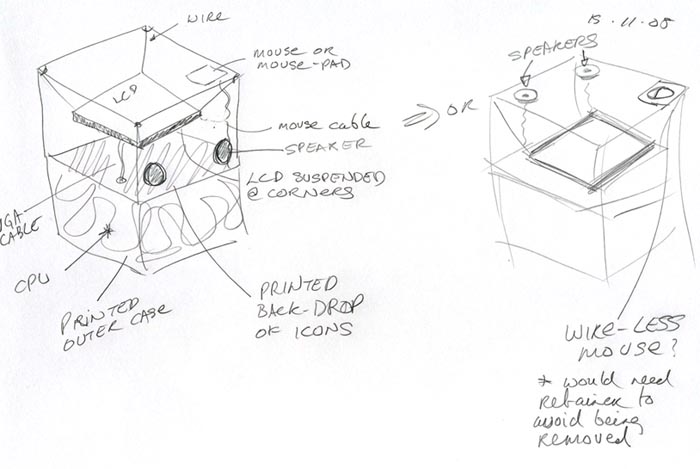 WIRE
MOUSE OR
MOUSE-PAD
LCD
MOUSE CABLE
SPEAKER
LCD SUSPENDED
@ CORNERS
VGA
CABLE
CPU
PRINTED
OUTER CASE
PRINTED
BACK-DROP
OF ICONS
=> OR
15.11.05
SPEAKERS
WIRE-LESS
MOUSE?
* would need
retainer to
avoid being
removed